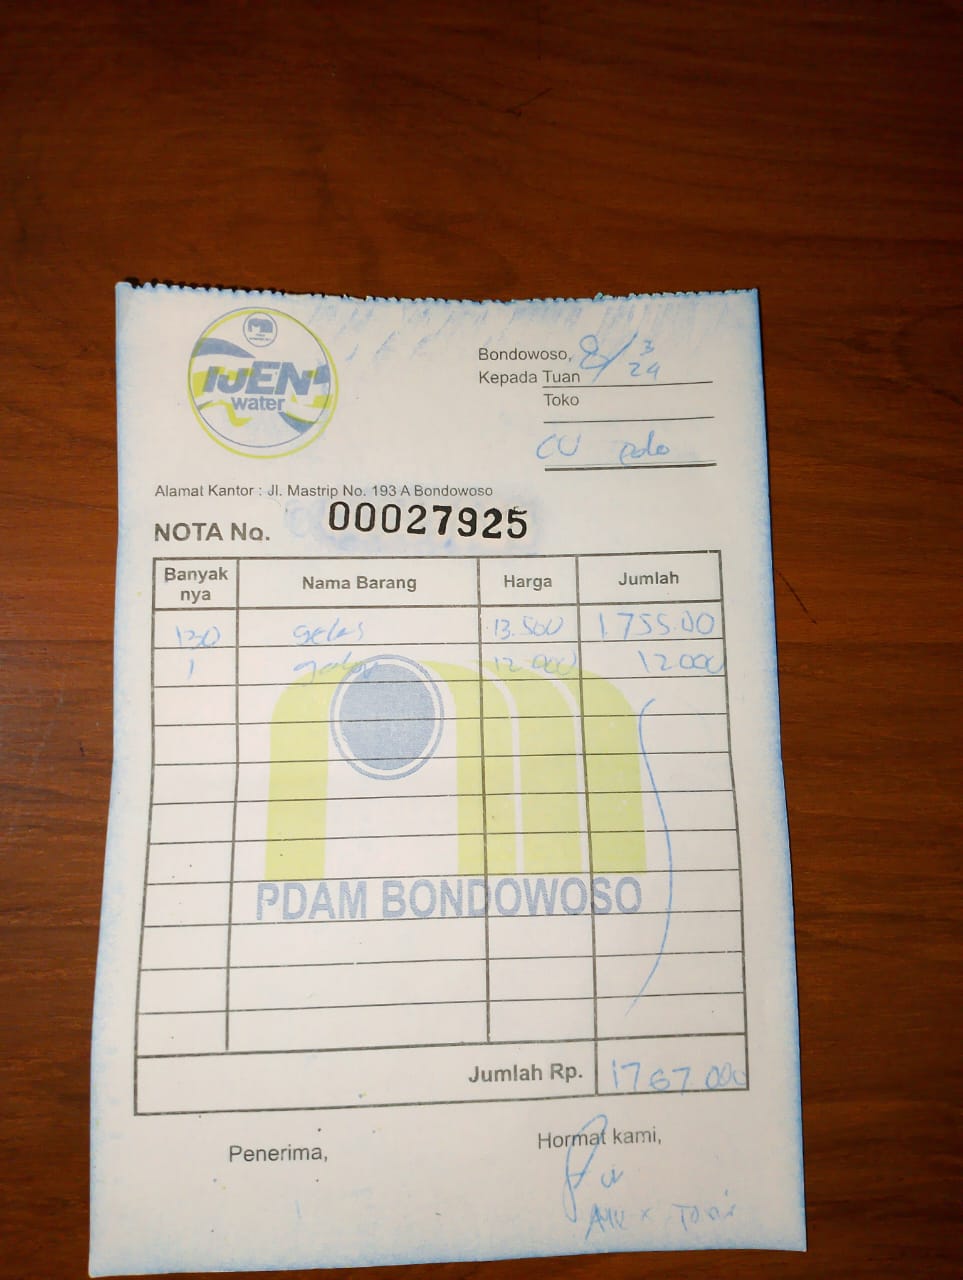 IJEN
water
Bondowoso, 8/3
24
Kepada Tuan
Toko
CV
Alamat Kantor : Jl. Mastrip No. 193 A Bondowoso
NOTA No. 00027925
Banyak nya Nama Barang Harga Jumlah
130 gelas 13.500 1.755.00
1 galon 12.000 12.000
PDAM BONDOWOSO
Jumlah Rp. 1767 000
Penerima, Hormat kami,